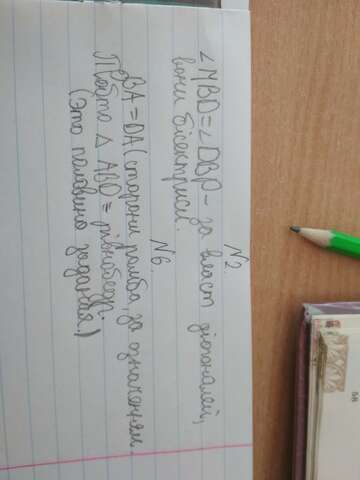 N2.
∠MBD = ∠DBP - за власт діагоналей,
вони бісектриси.
N6.
BA = DA (сторони ромба, за означенням.
Тобто △ ABD = рівнобедр.
(Это половина задания)
58